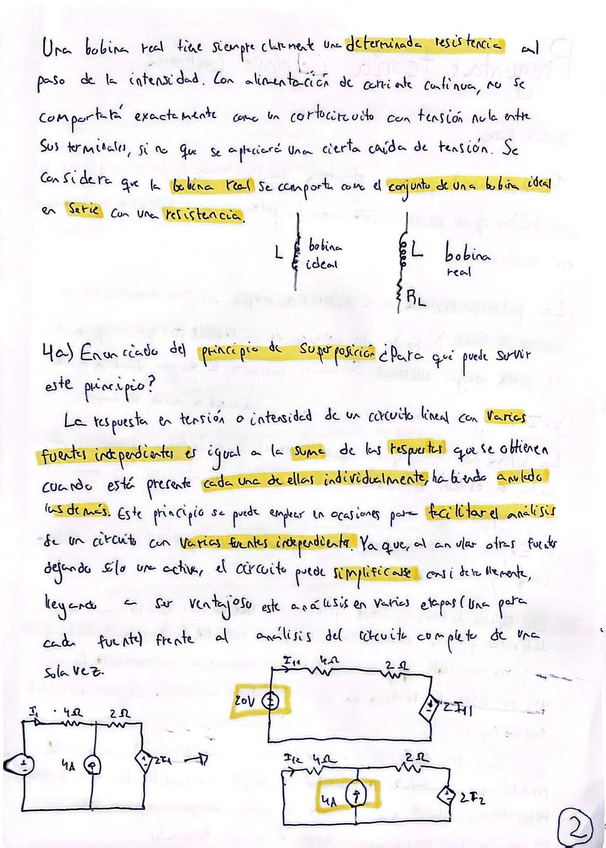 Una bobina real tiene siempre claramente una determinada resistencia al
paso de la intensidad. Con alimentación de corriente continua, no se
comportará exactamente como un cortocircuito con tensión nula entre
sus terminales, si no que se apreciará una cierta caída de tensión. Se
considera que la bobina real se comporta como el conjunto de una bobina ideal
en serie con una resistencia.
L bobina
ideal
L bobina
real
RL
4a) Enunciado del principio de superposición ¿Para qué puede servir
este principio?
La respuesta en tensión o intensidad de un circuito lineal con varias
fuentes independientes es igual a la suma de las respuestas que se obtienen
cuando está presente cada una de ellas individualmente, habiendo anulado
las demás. Este principio se puede emplear en ocasiones para facilitar el análisis
de un circuito con varias fuentes independientes. Ya que, al anular otras fuentes
dejando sólo una activa, el circuito puede simplificarse considerablemente,
llegando a ser ventajoso este análisis en varias etapas (una para
cada fuente) frente al análisis del circuito completo de una
sola vez.
I11 4Ω 2Ω
20V 2I11
I1 4Ω 2Ω
4A 2I1
I12 4Ω 2Ω
4A 2I2
2